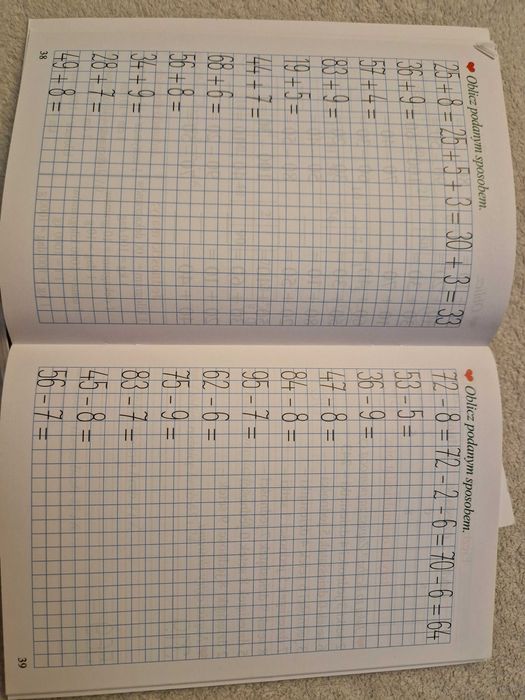 Oblicz podanym sposobem.
25 + 8 = 25 + 5 + 3 = 30 + 3 = 33
36 + 9 =
57 + 4 =
83 + 9 =
19 + 5 =
44 + 7 =
68 + 6 =
56 + 8 =
34 + 9 =
28 + 7 =
49 + 8 =
38
Oblicz podanym sposobem.
72 - 8 = 72 - 2 - 6 = 70 - 6 = 64
53 - 5 =
36 - 9 =
47 - 8 =
84 - 8 =
95 - 7 =
62 - 6 =
75 - 9 =
83 - 7 =
45 - 8 =
56 - 7 =
39